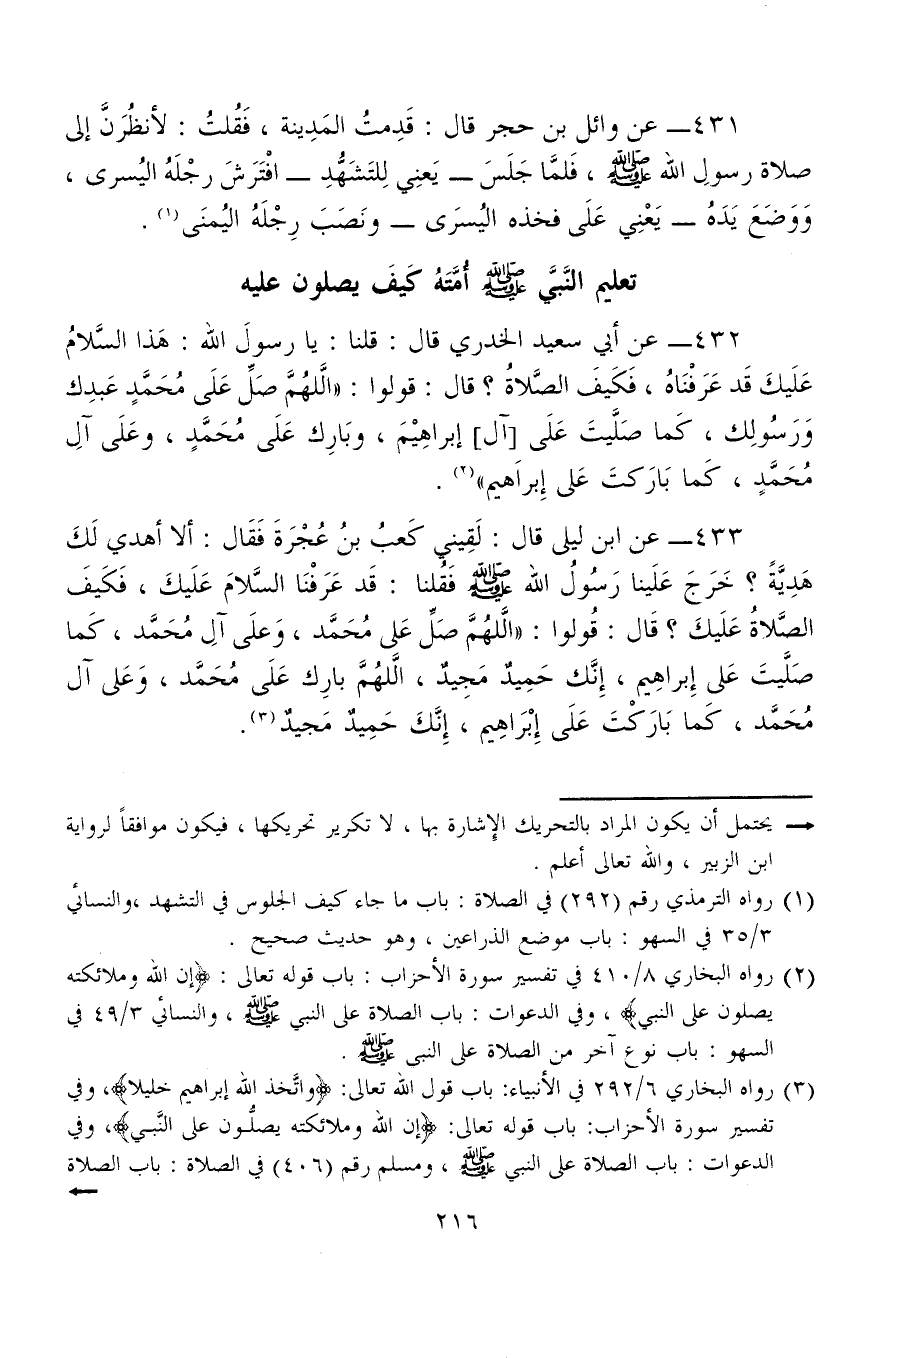 ٤٣١ــ عن وائل بن حجر قال : قَدِمتُ المَدِينة ، فَقُلتُ : لأنظُرَنَّ إلى
صلاة رسولِ الله ﷺ ، فَلمَّا جَلَسَ ــ يَعنِي لِلتَشَهُّدِ ــ افْتَرَشَ رِجْلَهُ اليُسرى ،
وَوَضَعَ يَدَهُ ــ يَعْنِي عَلَى فخذه اليُسرَى ــ ونَصَبَ رِجْلَهُ اليُمنَى(١) .
تعليم النَّبيَّ ﷺ أُمَّتَهُ كَيفَ يصلون عليه
٤٣٢ــ عن أبي سعيد الخدري قال : قلنا : يا رسولَ الله : هَذا السَّلامُ
عَلَيكَ قَد عَرَفْنَاهُ ، فَكَيفَ الصَّلاةُ ؟ قال : قولوا : «الَّلهُمَّ صَلِّ عَلَى مُحَمَّدٍ عَبدِكَ
وَرَسُولِك ، كَما صَلَّيتَ عَلَى [آل] إبراهِيْمَ ، وبَارِك عَلَى مُحَمَّدٍ ، وعَلَى آلِ
مُحَمَّدٍ ، كَما بَارَكتَ عَلى إِبرَاهيم»(٢) .
٤٣٣ــ عن ابن ليلى قال : لَقِيني كَعبُ بنُ عُجْرَةَ فَقَال : ألا أهدي لَكَ
هَدِيَّةً ؟ خَرَجَ عَلَينا رَسُولُ الله ﷺ فَقُلنا : قَد عَرَفْنَا السَّلامَ عَلَيكَ ، فَكَيفَ
الصَّلاةُ عَلَيكَ ؟ قال : قُولوا : «الَّلهُمَّ صَلِّ عَلى مُحَمَّد ، وَعلَى آلِ مُحَمَّد ، كَما
صَلَّيتَ عَلى إِبراهِيم ، إِنَّك حَمِيدٌ مَجِيدٌ ، الَّلهُمَّ بارِك عَلَى مُحَمَّد ، وَعَلى آل
مُحَمَّد ، كَما بَارَكْتَ عَلَى إِبْرَاهِيم ، إِنَّكَ حَمِيدٌ مَجيدٌ(٣).
← يحتمل أن يكون المراد بالتحريك الإشارة بها ، لا تكرير تحريكها ، فيكون موافقاً لرواية
ابن الزبير ، والله تعالى أعلم .
(١) رواه الترمذي رقم (٢٩٢) في الصلاة : باب ما جاء كيف الجلوس في التشهد ،والنسائي
٣٥/٣ في السهو : باب موضع الذراعين ، وهو حديث صحيح .
(٢) رواه البخاري ٤١٠/٨ في تفسير سورة الأحزاب : باب قوله تعالى : ﴿إن الله وملائكته
يصلون على النبي﴾ ، وفي الدعوات : باب الصلاة على النبي ﷺ ، والنسائي ٤٩/٣ في
السهو : باب نوع آخر من الصلاة على النبي ﷺ .
(٣) رواه البخاري ٢٩٢/٦ في الأنبياء: باب قول الله تعالى: ﴿واتَّخذ الله إبراهيم خليلا﴾، وفي
تفسير سورة الأحزاب: باب قوله تعالى: ﴿إن الله وملائكته يصلُّون على النَّبي﴾، وفي
الدعوات : باب الصلاة على النبي ﷺ ، ومسلم رقم (٤٠٦) في الصلاة : باب الصلاة
←
٢١٦